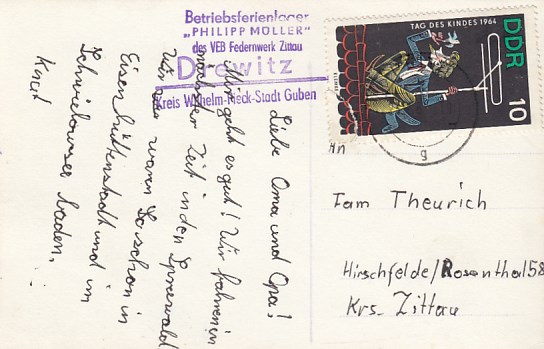 Betriebsferienlager
"PHILIPP MÜLLER"
des VEB Federnwerk Zittau
Drewitz
Kreis Wilhelm-Pieck-Stadt Guben
TAG DES KINDES 1964
DDR
10
g
An
Fam Theurich
Hirschfelde/Rosenthal 58
Krs. Zittau
Liebe Oma und Opa!
Mir geht es gut! Wir fahren in
nächster Zeit in den Spreewald
Wir waren schon in
Eisenhüttenstadt und im
Schwielowsee baden.
Knut